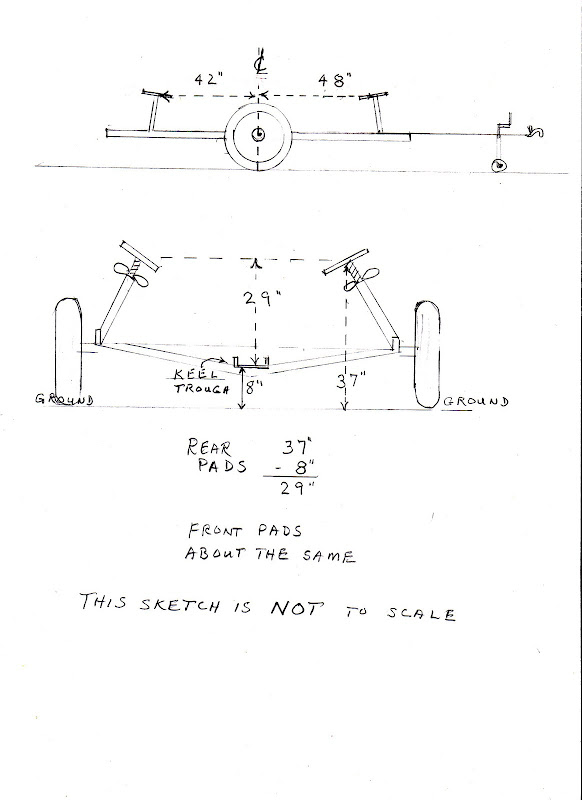 ℄
42" 48"
29"
KEEL
TROUGH
8"
37"
GROUND
GROUND
REAR 37"
PADS - 8"
29"
FRONT PADS
ABOUT THE SAME
THIS SKETCH IS NOT TO SCALE